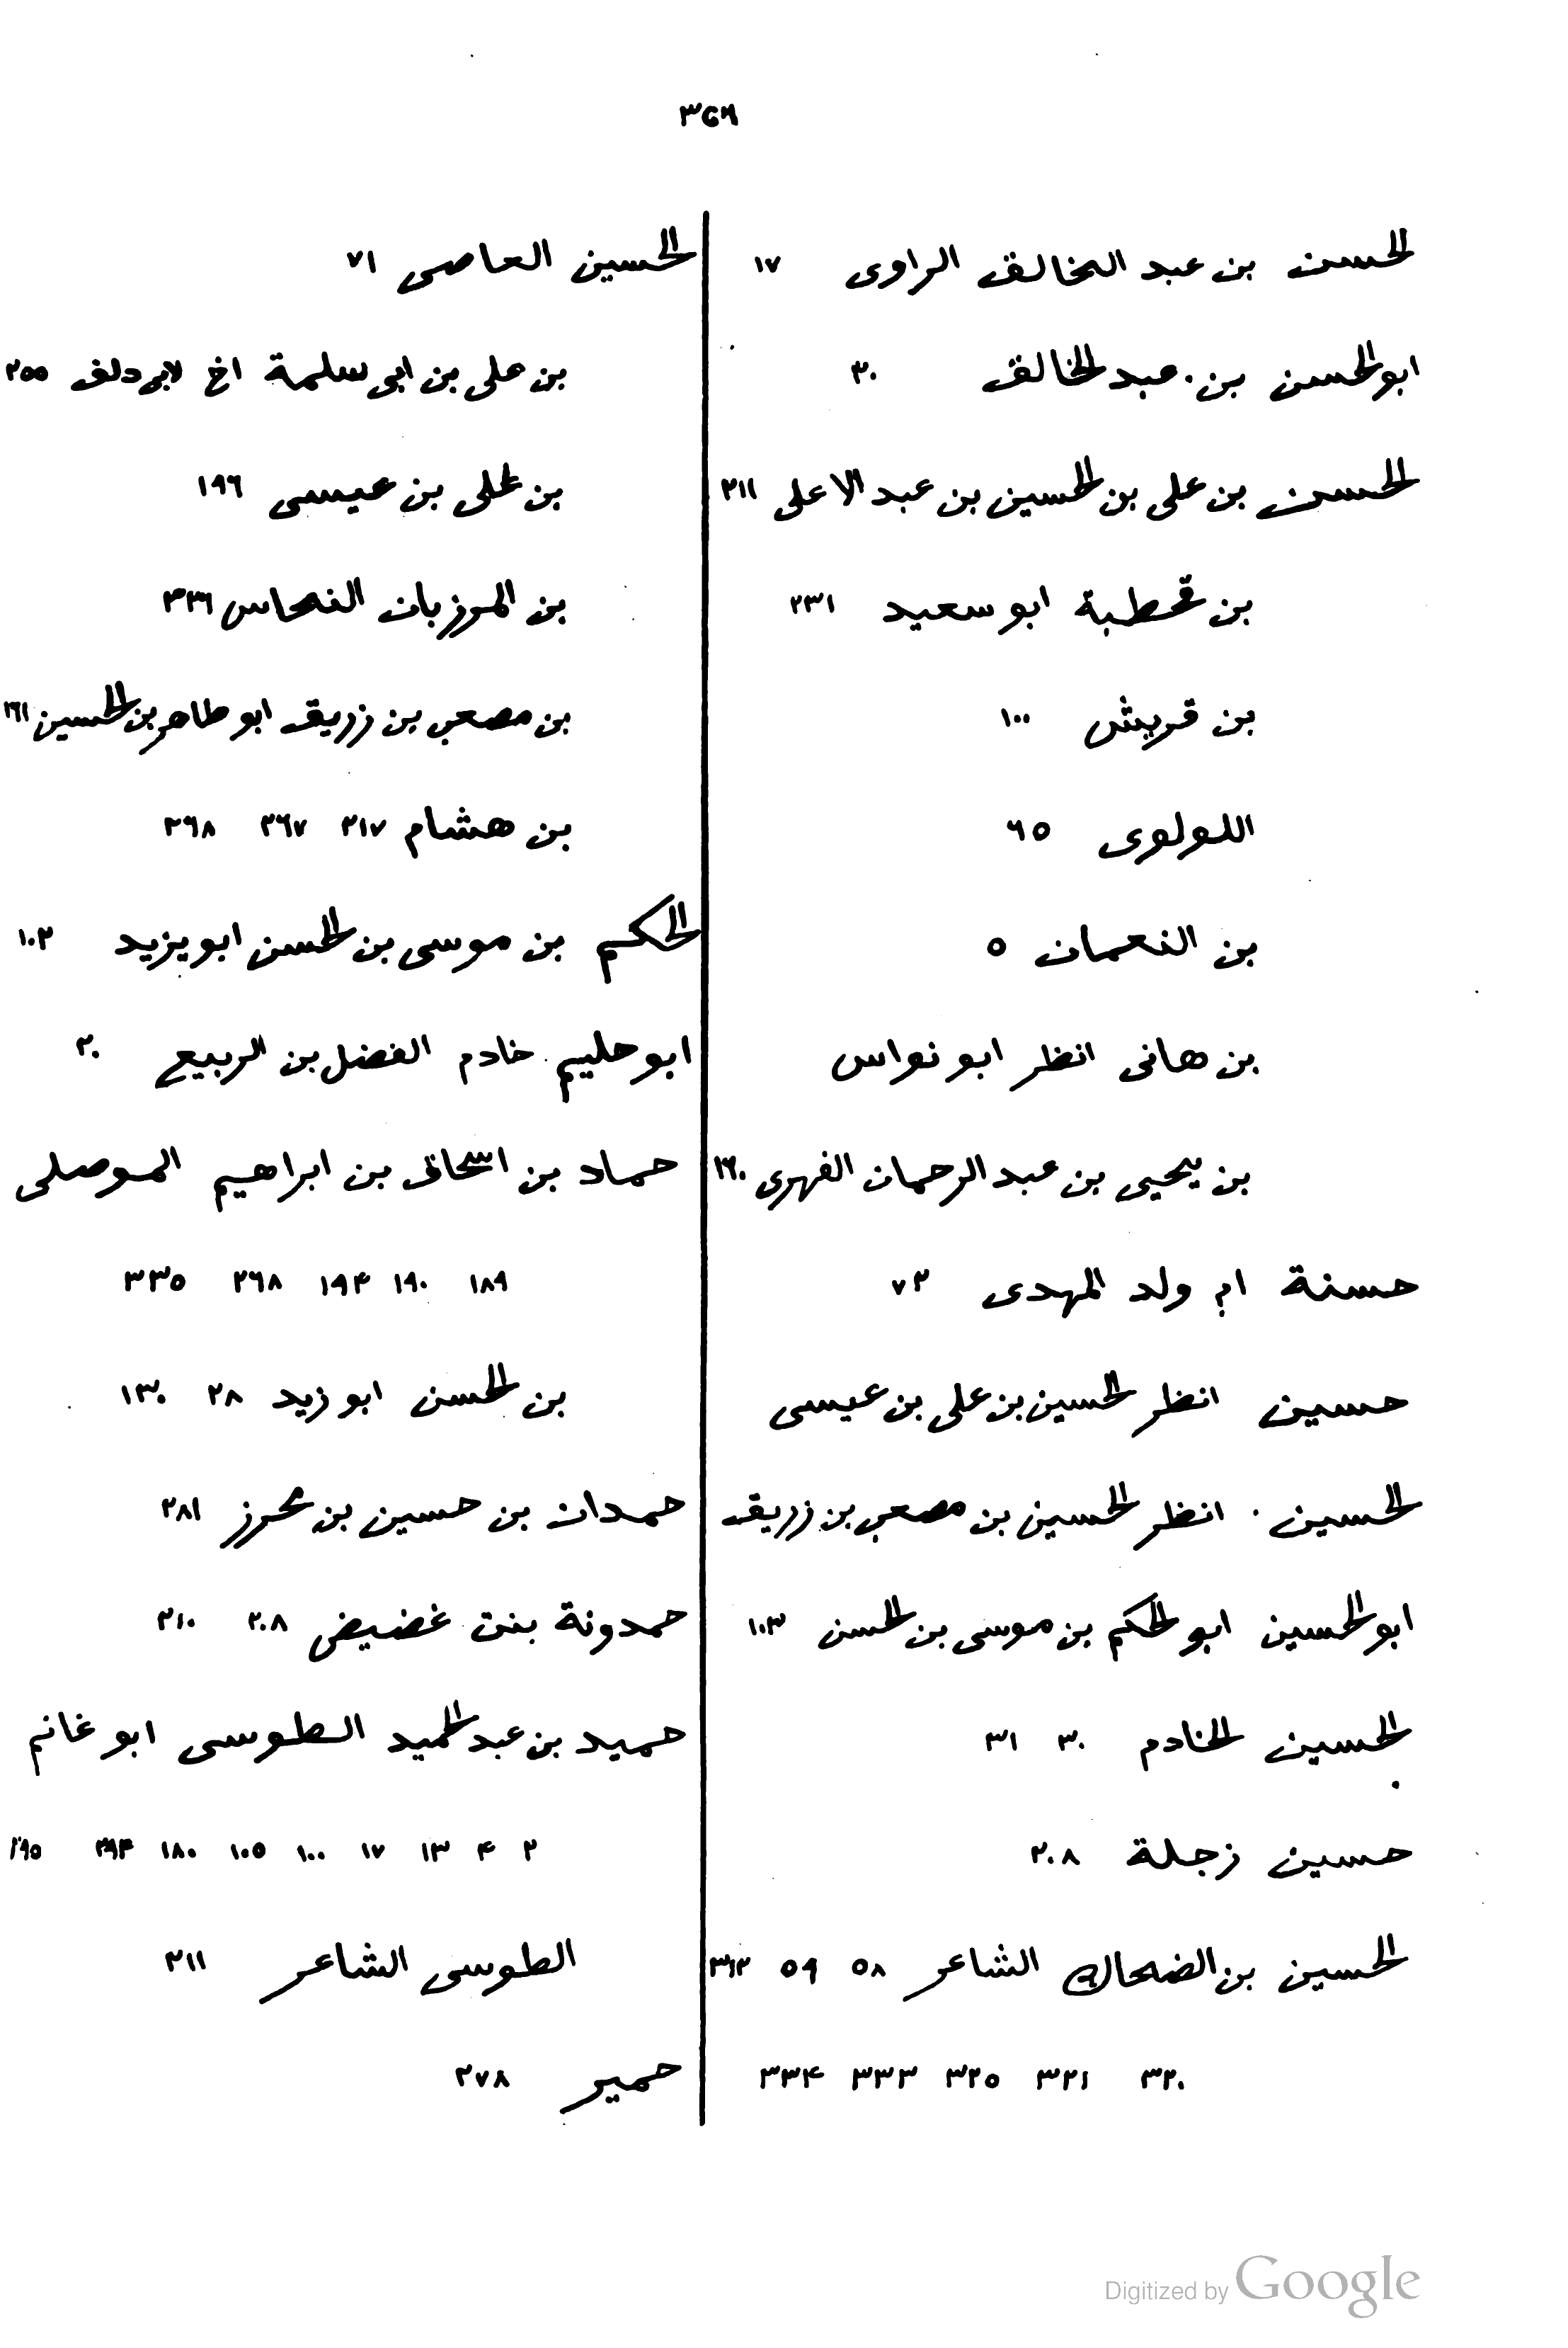 الحسن بن عبد الخالق الراوى ١٧
ابو الحسن بن عبد الخالق ٣٠
الحسن بن على بن الحسين بن عبد الاعلى ٢١١
بن قحطبة ابو سعيد ٢٣١
بن قريش ١٠٠
اللولوى ٦٥
بن النعمان ٥
بن هانى انظر ابو نواس
بن يحيى بن عبد الرحمان الفهرى ٢٦٠
حسنة ام ولد المهدى ٧٢
حسين انظر الحسين بن على بن عيسى
الحسين انظر الحسين بن مصعب بن زريق
ابو الحسين ابو الحكم بن موسى بن الحسن ١٠٣
الحسين الخادم ٣٠ ٣١
حسين زجلة ٢٠٨
الحسين بن الضحاك الشاعر ٥٨ ٥٩
٣٢٠ ٣٢١ ٣٢٥ ٣٣٣ ٣٣۴
الحسين العاصى ٧١
بن على بن ابى سلمة اخ لابى دلف ٢٥٥
بن على بن عيسى ١٩٦
بن المرزبان النحاس ٣٣٦
بن مصعب بن زريق ابو طاهر بن الحسين
بن هشام ٢١٧ ٢٦٧ ٢٦٨
الحكم بن موسى بن الحسن ابو يزيد ١٠٢
ابو حليم خادم الفضل بن الربيع ٢٠
حماد بن اسحاق بن ابراهيم الموصلى
١٨٩ ١٩٠ ١٩۴ ٢٦٨ ٣٣٥
بن الحسن ابو زيد ٢٨ ١٣٠
حمدان بن حسين بن محرز ٢٨١
حمدونة بنت غضيض ٢٠٨ ٢١٠
حميد بن عبد الحميد الطوسى ابو غانم
٢ ۴ ١٣ ١٧ ١٠٠ ١٠٥ ١٨٠ ٢٩۴ ٢٩٥
الطوسى الشاعر ٢١١
حمير ٢٧٨
Digitized by Google